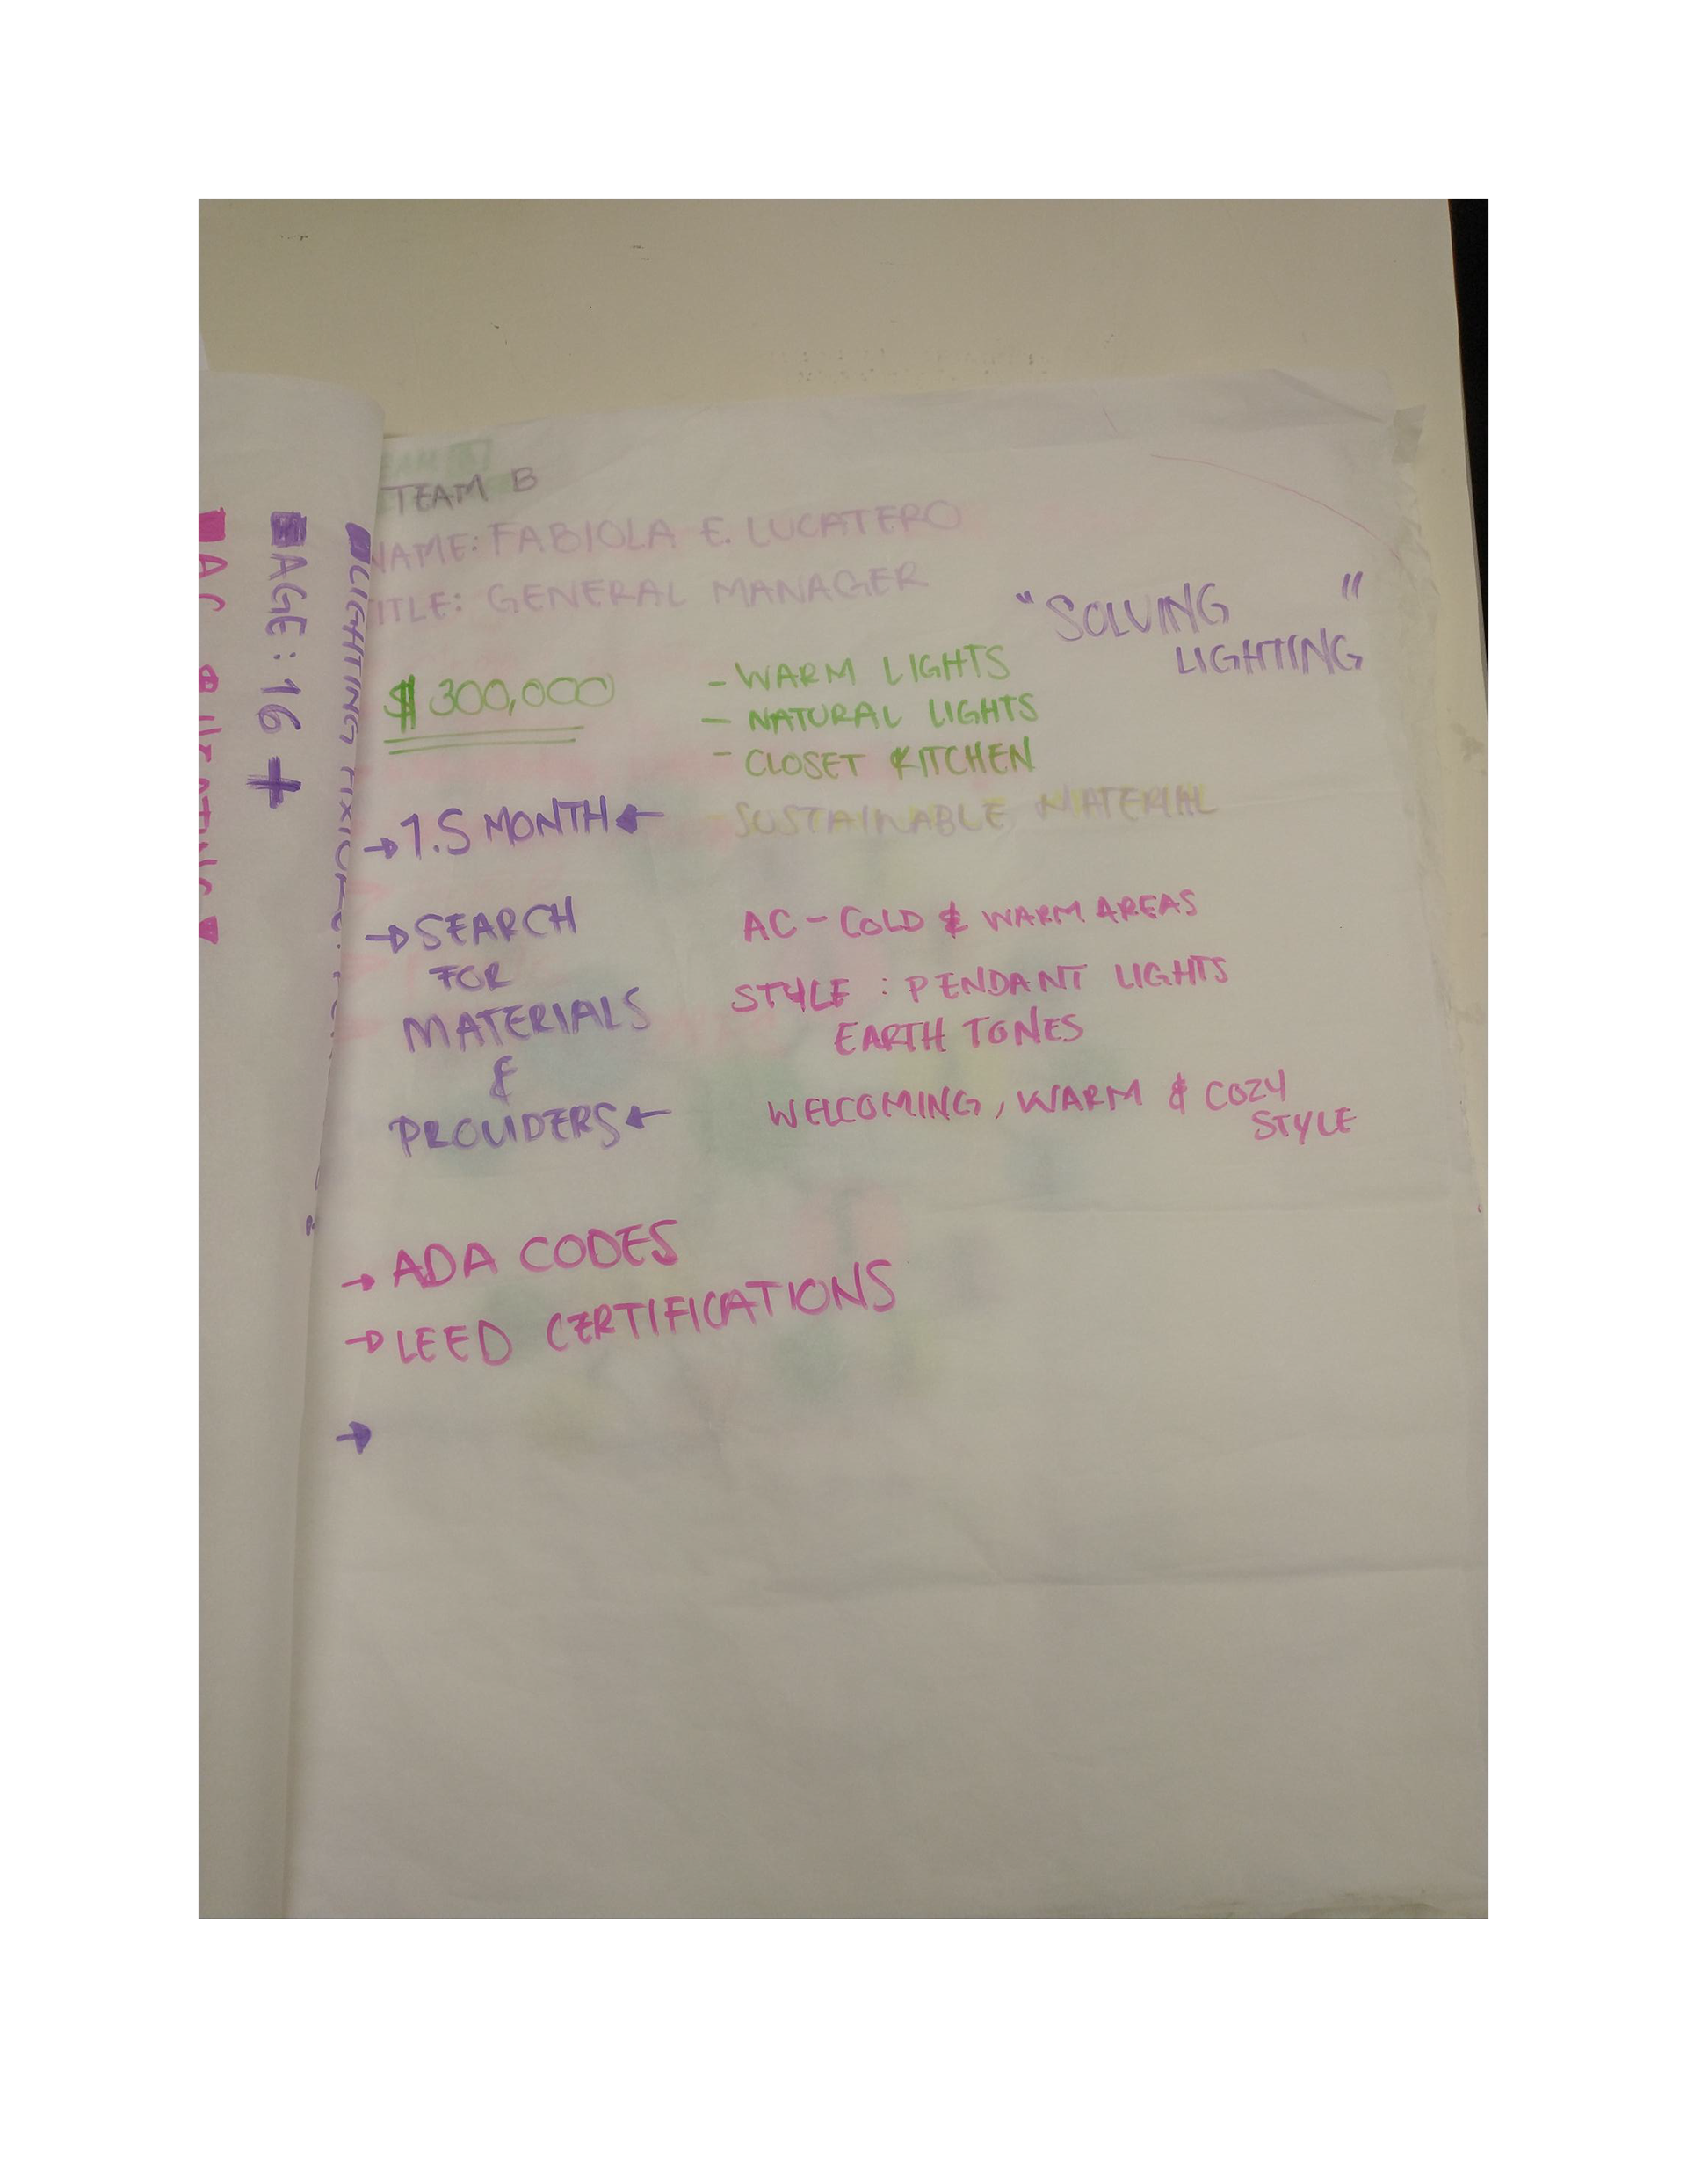 TEAM B
NAME: FABIOLA E. LUCATERO
TITLE: GENERAL MANAGER
"SOLVING
LIGHTING"
$300,000
- WARM LIGHTS
- NATURAL LIGHTS
- CLOSET KITCHEN
- SUSTAINABLE MATERIAL
→ 1.5 MONTH ←
→ SEARCH
FOR
MATERIALS
&
PROVIDERS ←
AC - COLD & WARM AREAS
STYLE : PENDANT LIGHTS
EARTH TONES
WELCOMING, WARM & COZY
STYLE
→ ADA CODES
→ LEED CERTIFICATIONS
→
LIGHTING
AGE: 16 +
AC